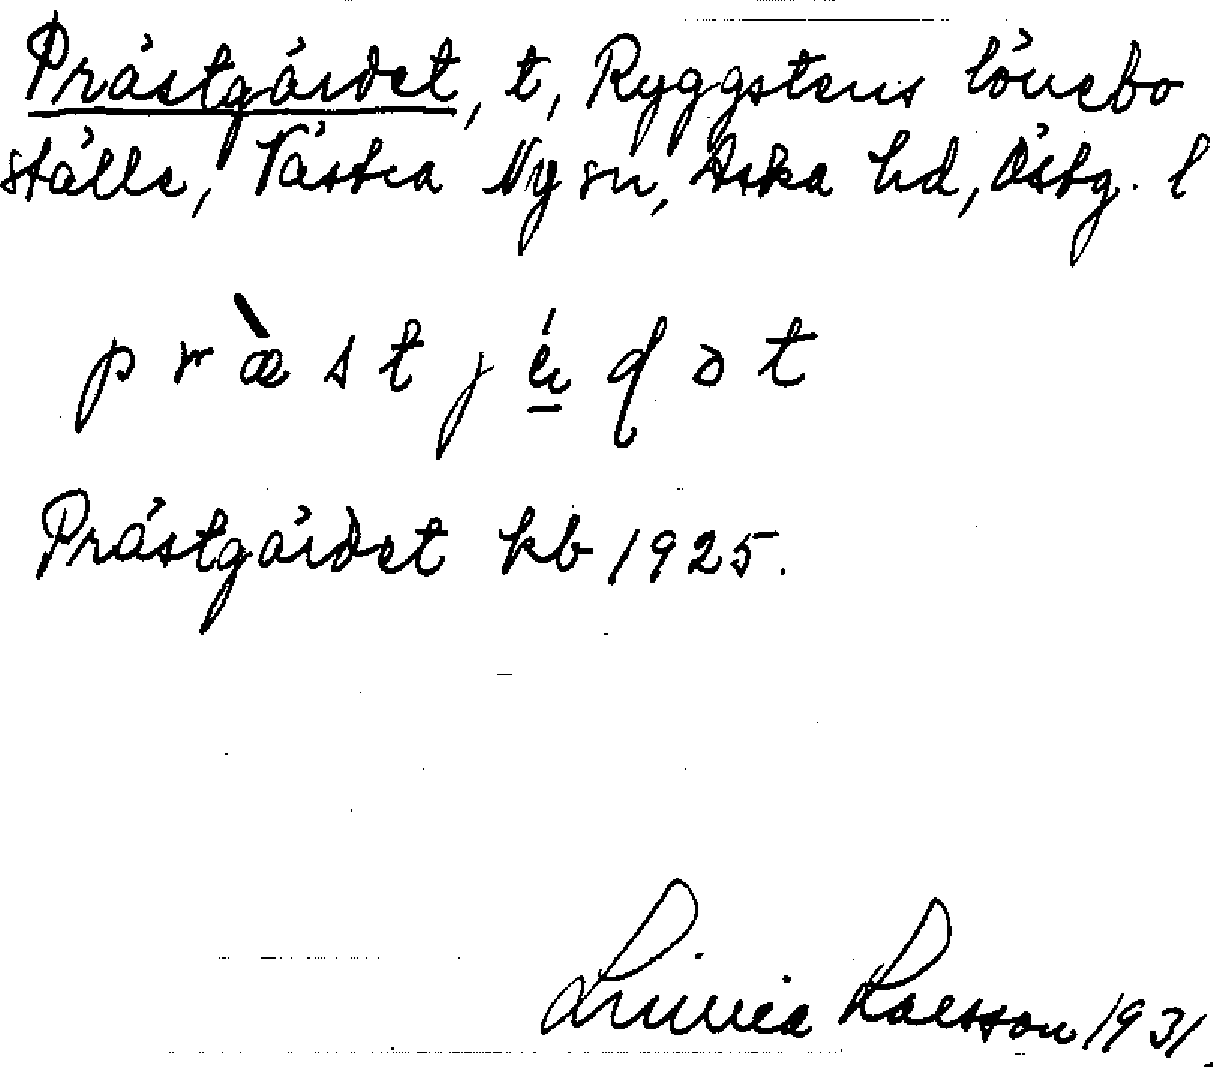 Prästgärdet, t, Ryggstens lönebo
ställe, Västra Ny sn, Aska hd, Östg. l
Prästgärdet kb 1925.
Linnéa Larsson 1931.